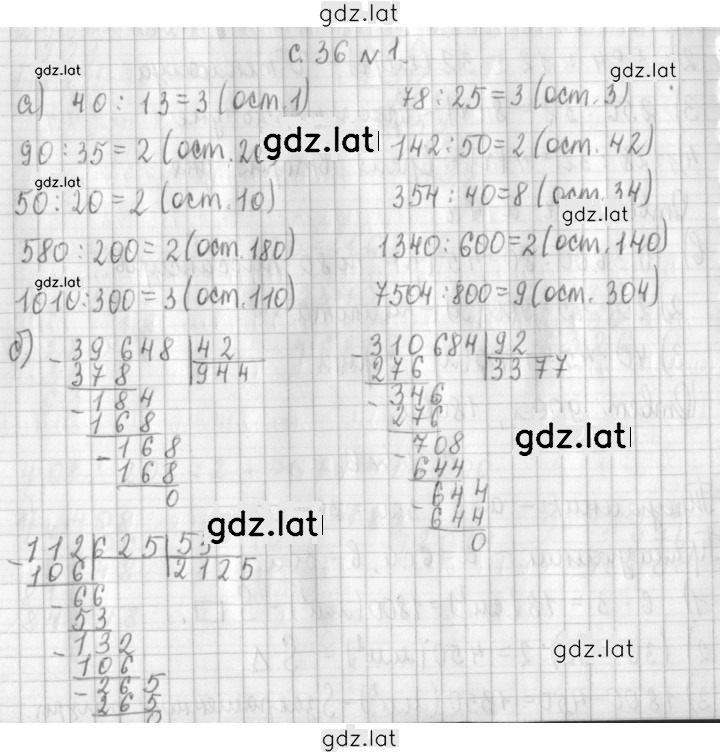 gdz.lat
с. 36 № 1.
gdz.lat
gdz.lat
а) 40 : 13 = 3 (ост. 1) 78 : 25 = 3 (ост. 3)
gdz.lat
90 : 35 = 2 (ост. 20 142 : 50 = 2 (ост. 42)
gdz.lat
50 : 20 = 2 (ост. 10) 354 : 40 = 8 (ост. 34)
gdz.lat
580 : 200 = 2 (ост. 180) 1340 : 600 = 2 (ост. 140)
gdz.lat
1010 : 300 = 3 (ост. 110) 7504 : 800 = 9 (ост. 304)
б) - 39648 | 42
378 | 944
- 184
168
- 168
168
0
- 310684 | 92
276 | 3377
- 346
276
- 708
644
- 644
644
0
gdz.lat
gdz.lat
- 112625 | 53
106 | 2125
- 66
53
- 132
106
- 265
265
0
gdz.lat
gdz.lat